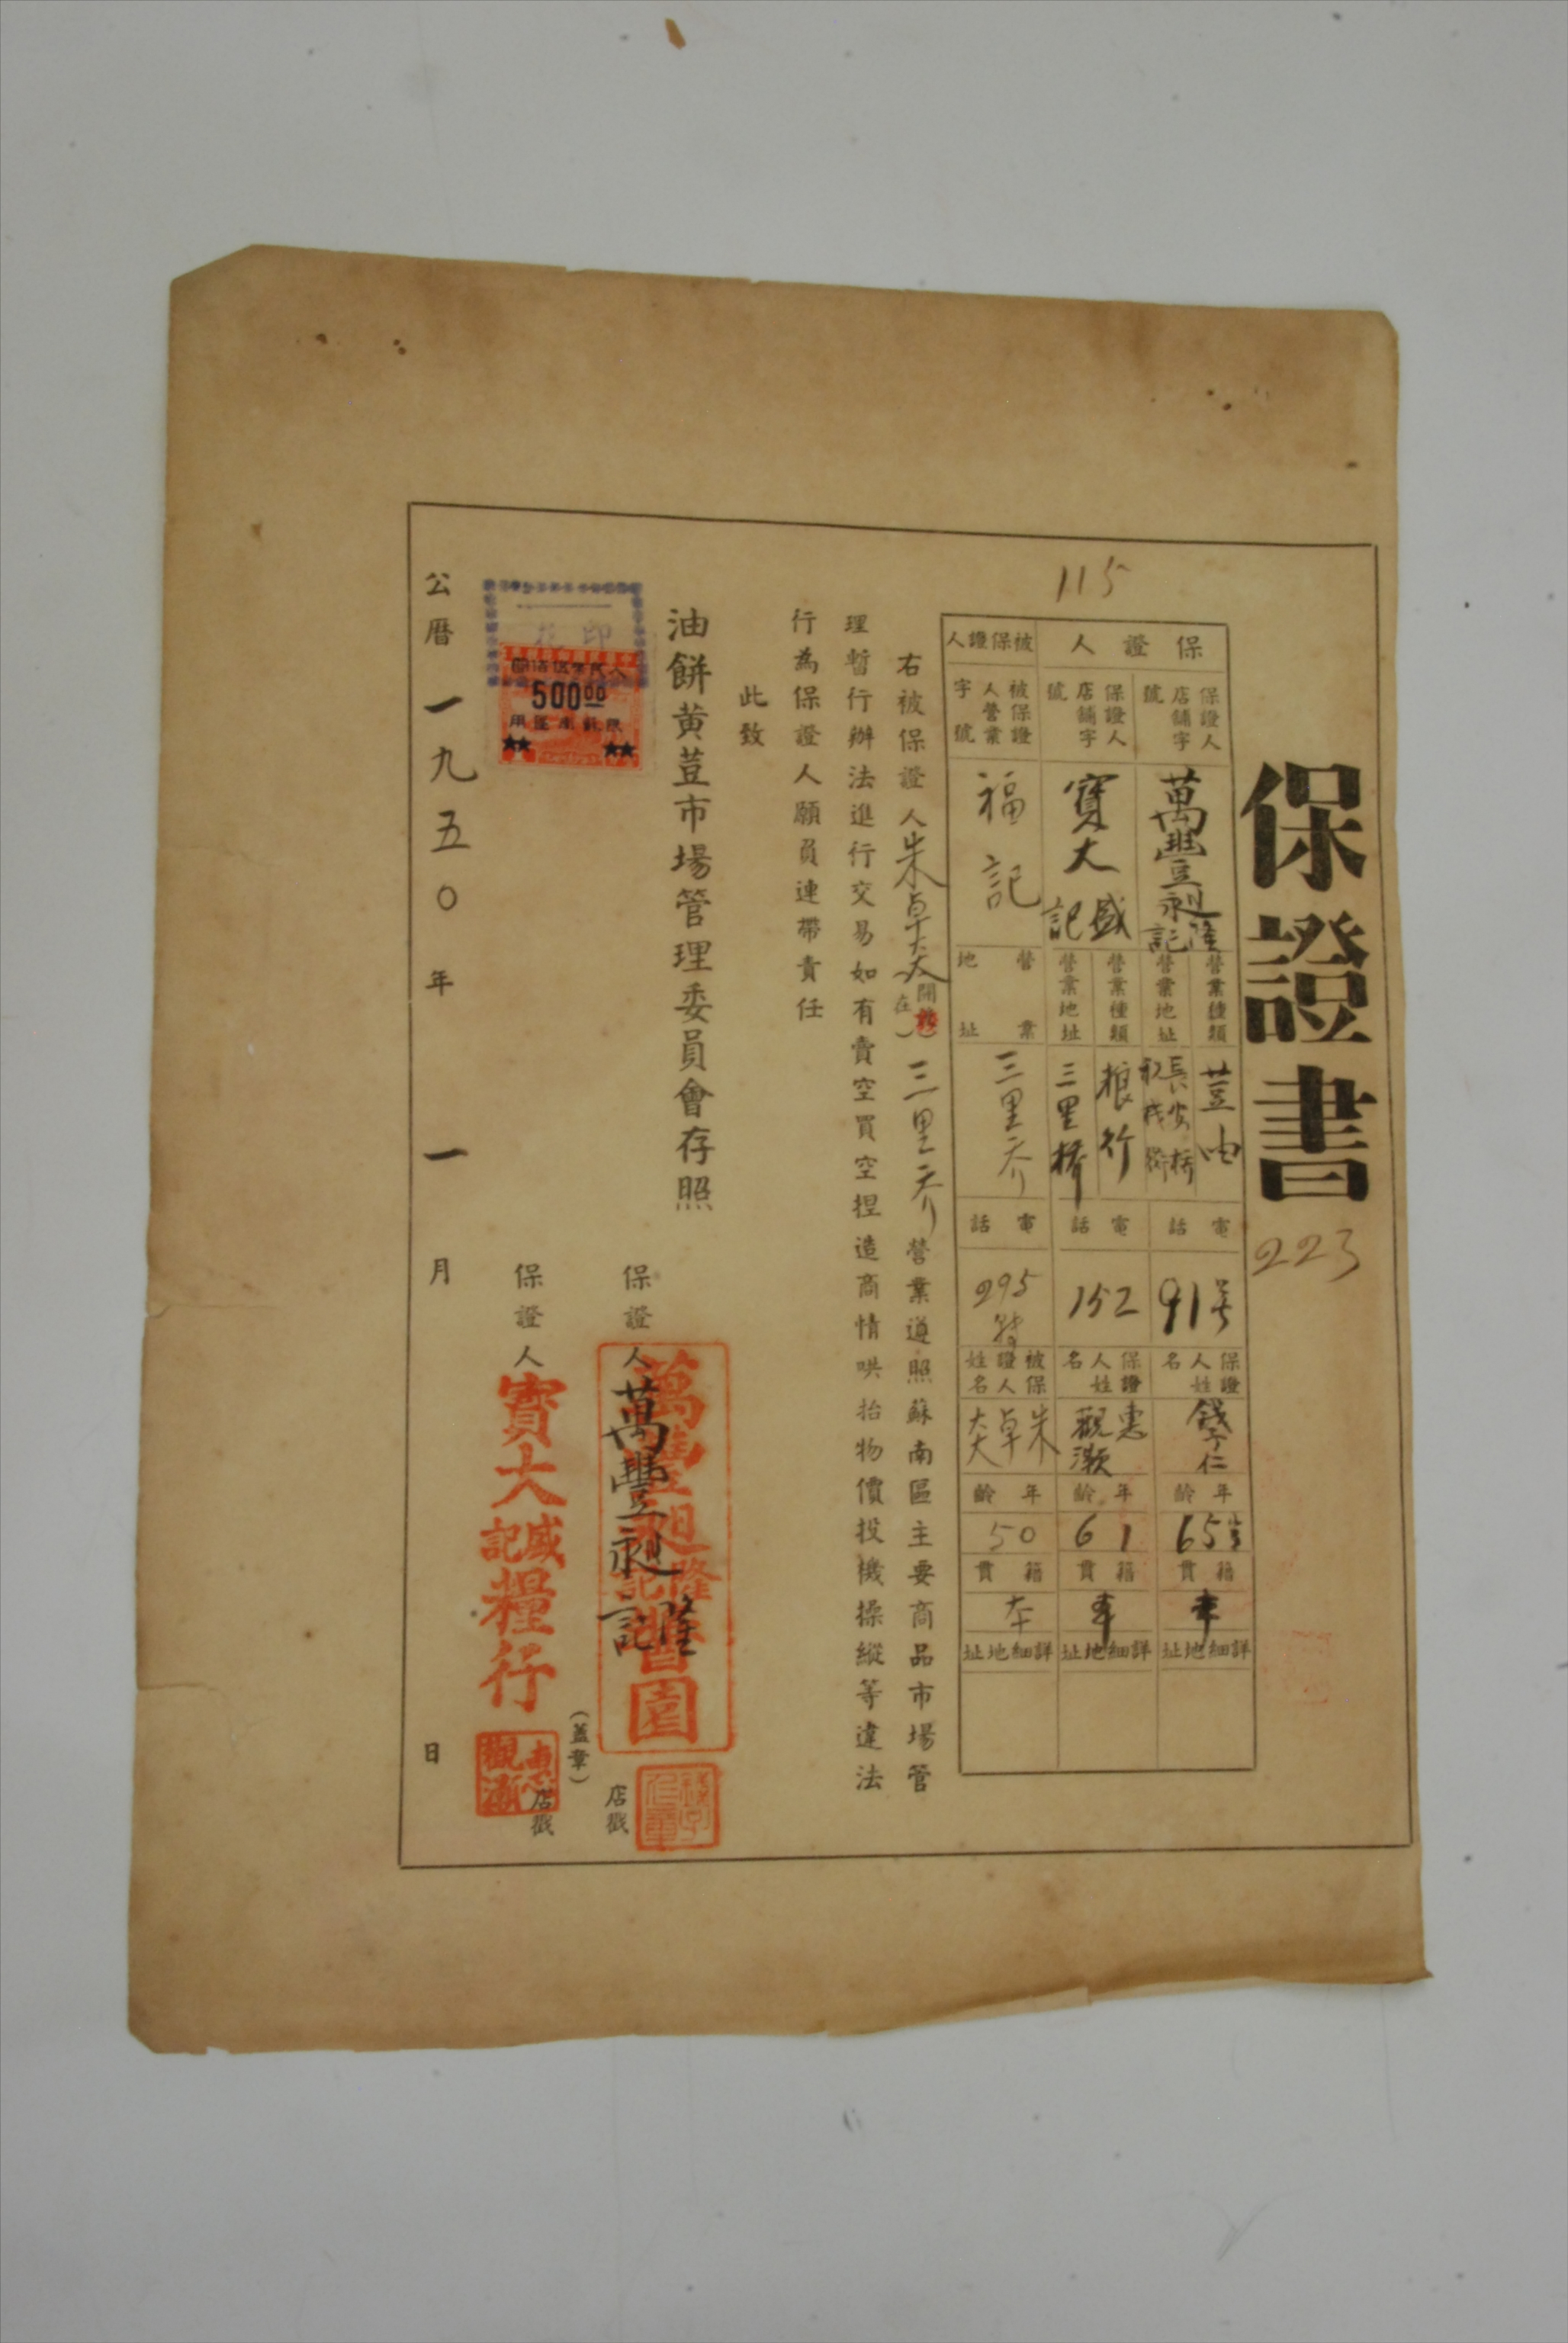 保證書
223
115
保證人
保證人店舖字號
萬豐昶隆記
營業種類
荳油
營業地址
長安橋
電話
91号
保證人姓名
錢子仁
年齡
65
籍貫
本
詳細地址
保證人店舖字號
寶大盛記
營業種類
粮行
營業地址
三里橋
電話
152
保證人姓名
惠觀灝
年齡
61
籍貫
本
詳細地址
被保證人
被保證人營業字號
福記
營業地址
三里乔
電話
295
被保證人姓名
朱卓英
年齡
50
籍貫
本
詳細地址
右被保證人朱卓英(開設在)三里乔營業遵照蘇南區主要商品市場管
理暫行辦法進行交易如有賣空買空捏造商情哄抬物價投機操縱等違法
行為保證人願負連帶責任
此致
油餅黃荳市場管理委員會存照
保證人 萬豐昶隆記
萬豐昶隆記醬園
店戳
(蓋章)
保證人
寶大盛記糧行
惠觀灝
店戳
印花
500.00
公曆一九五〇年一月 日